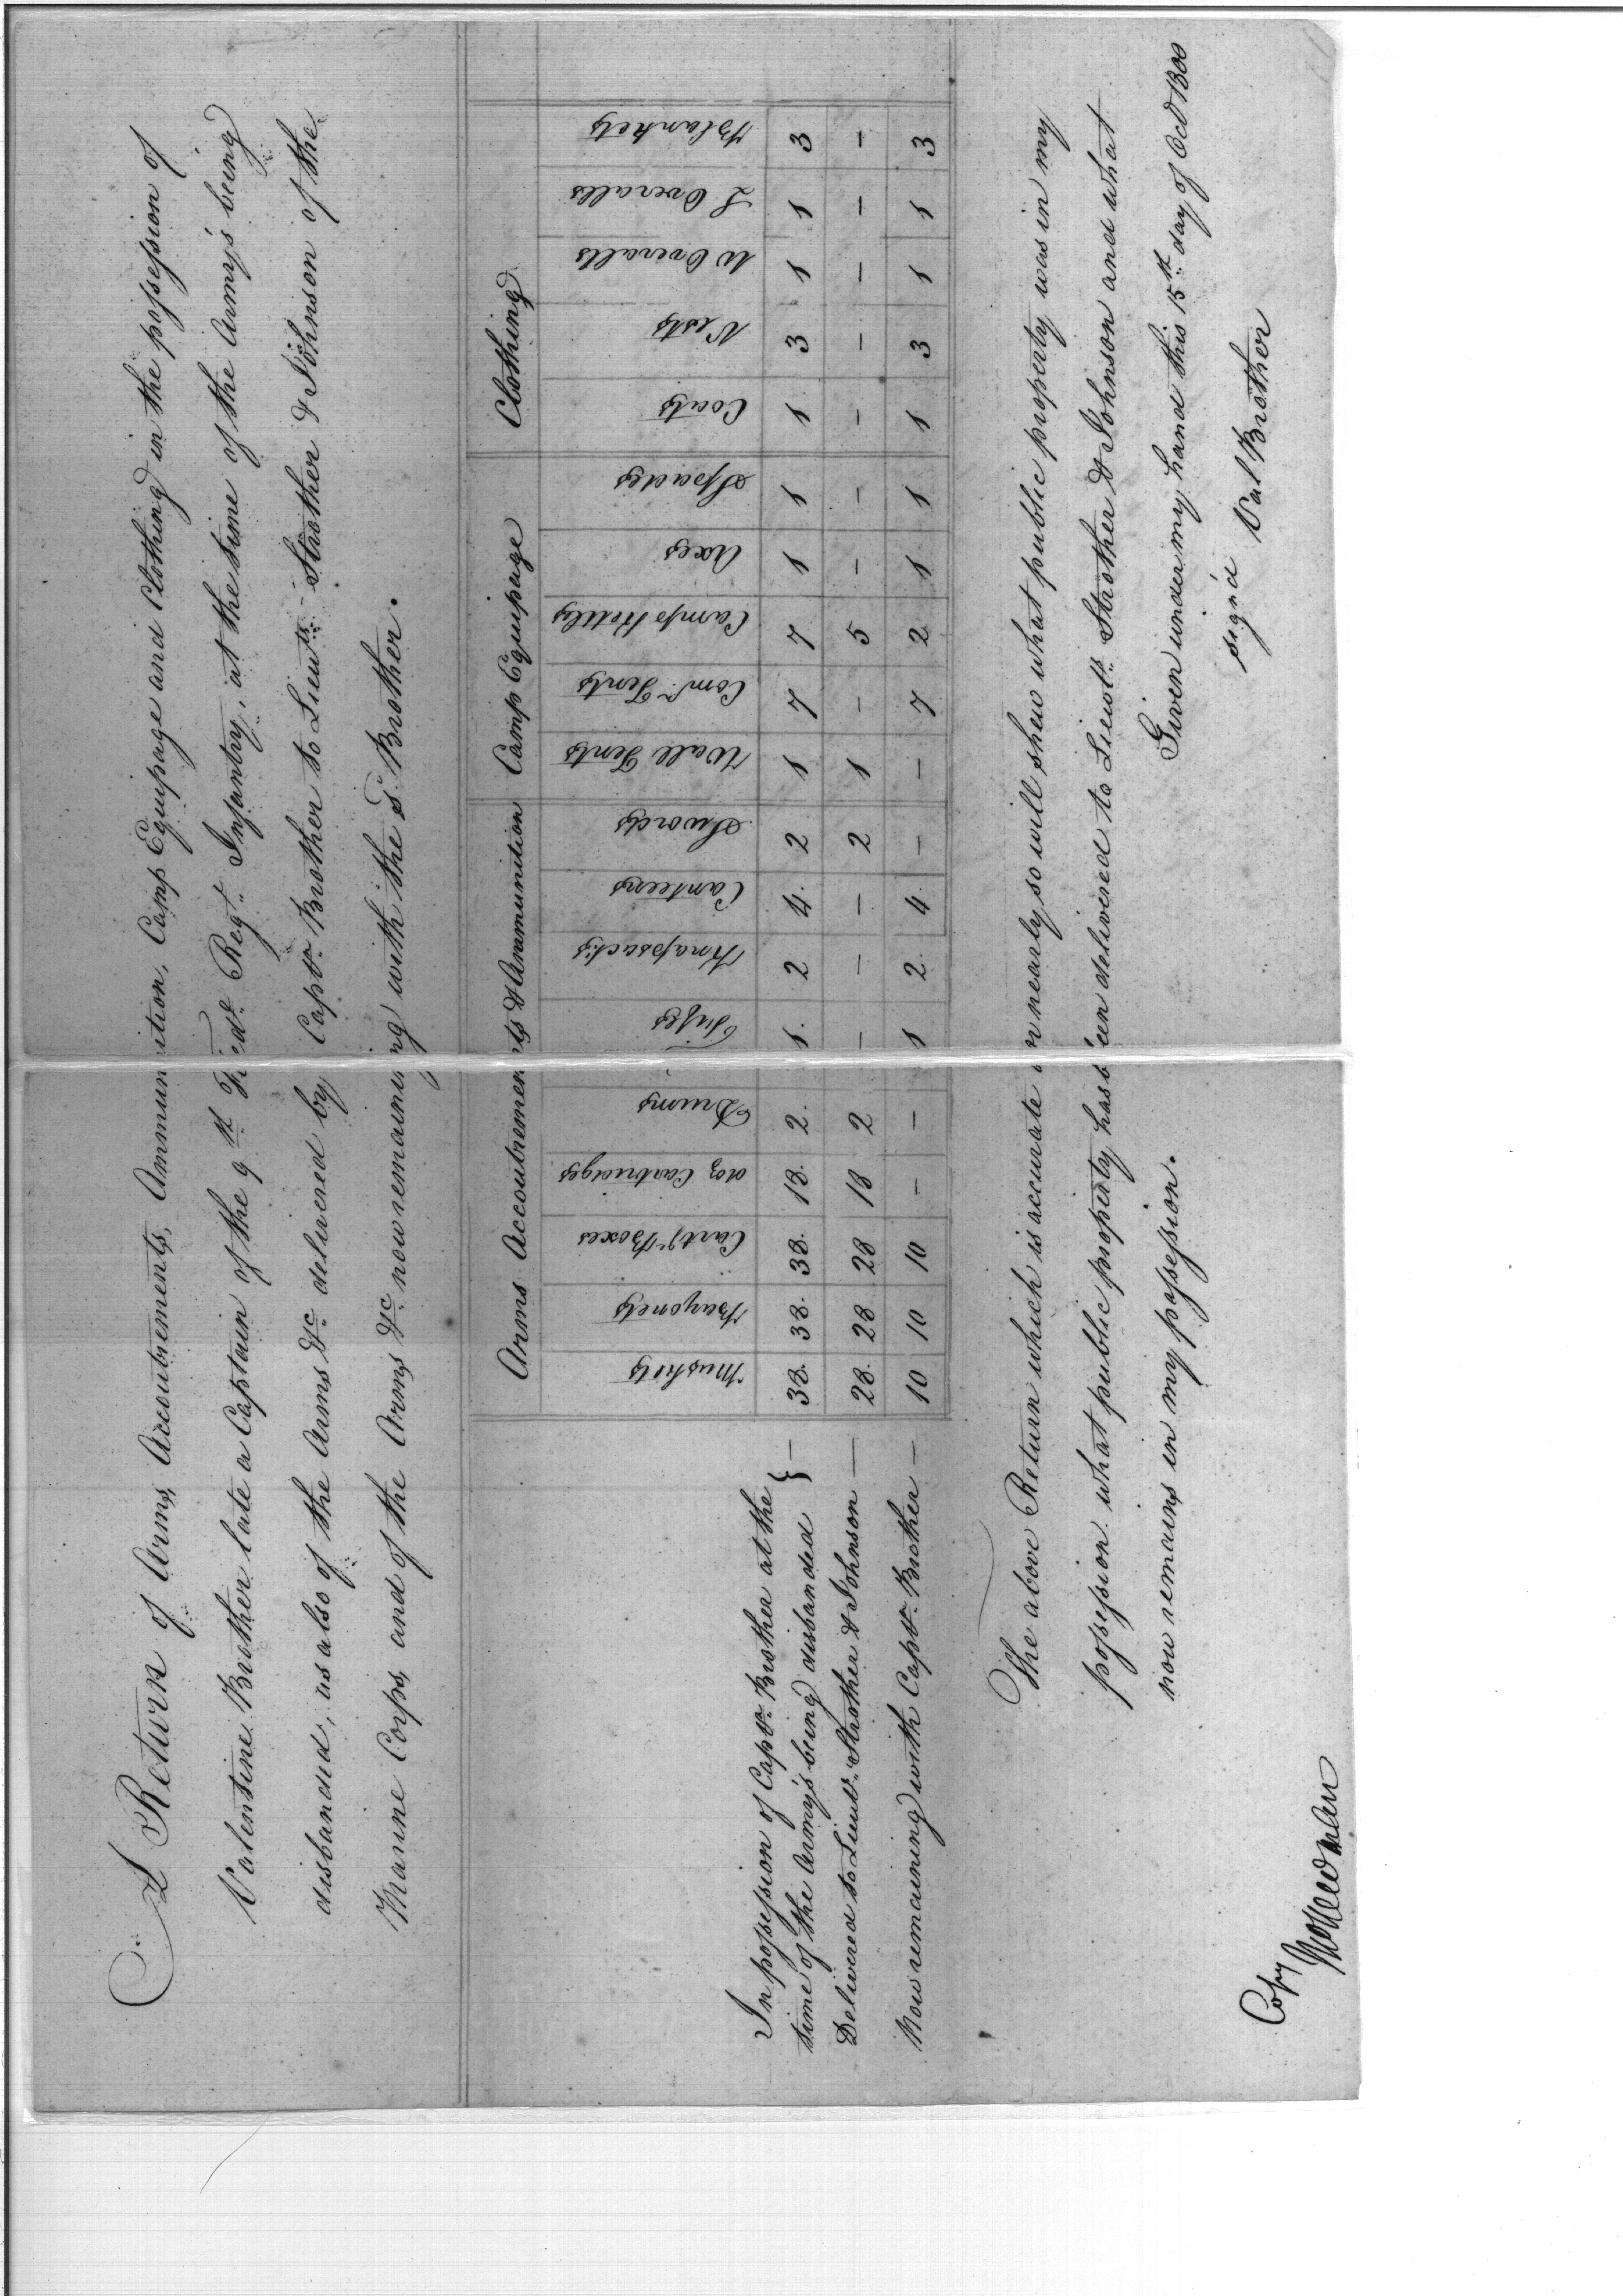 A Return of Arms, Accoutrements, Ammunition, Camp Equipage and Clothing in the possession of
Valentine Brother late a Captain of the 9th Regt. Infantry, at the time of the Army's being
disbanded, as also of the Arms &c. delivered by Captn. Brother to Lieuts. Strother & Johnson of the
Marine Corps, and of the Arms &c. now remaining with the sd. Brother.
Arms Accoutrements & Ammunition Camp Equipage Clothing
Muskets Bayonets Carte. Boxes doz Cartridges Drums Fifes Knapsacks Canteens Swords Wall Tents Comn. Tents Camp Kettles Axes Spades Coats Vests W Overalls L Overalls Blankets
In possession of Captn. Brother at the
time of the Army's being disbanded } — 38. 38. 38. 18. 2. 1. 2 4. 2 1 7 7 1 1 1 3 1 1 3
Delivered to Lieuts. Strother & Johnson — 28. 28 28 18 2 — — — 2 1 — 5 — — — — — — —
Now remaining with Captn. Brother — 10 10 10 — — 1 2 4 — — 7 2 1 1 1 3 1 1 3
The above Return which is accurate or nearly so will shew what public property was in my
possession what public property has been delivered to Lieuts. Strother & Johnson and what
now remains in my possession.
Given under my hand this 15th day of Oct 1800
sign'd Val Brother
Copy